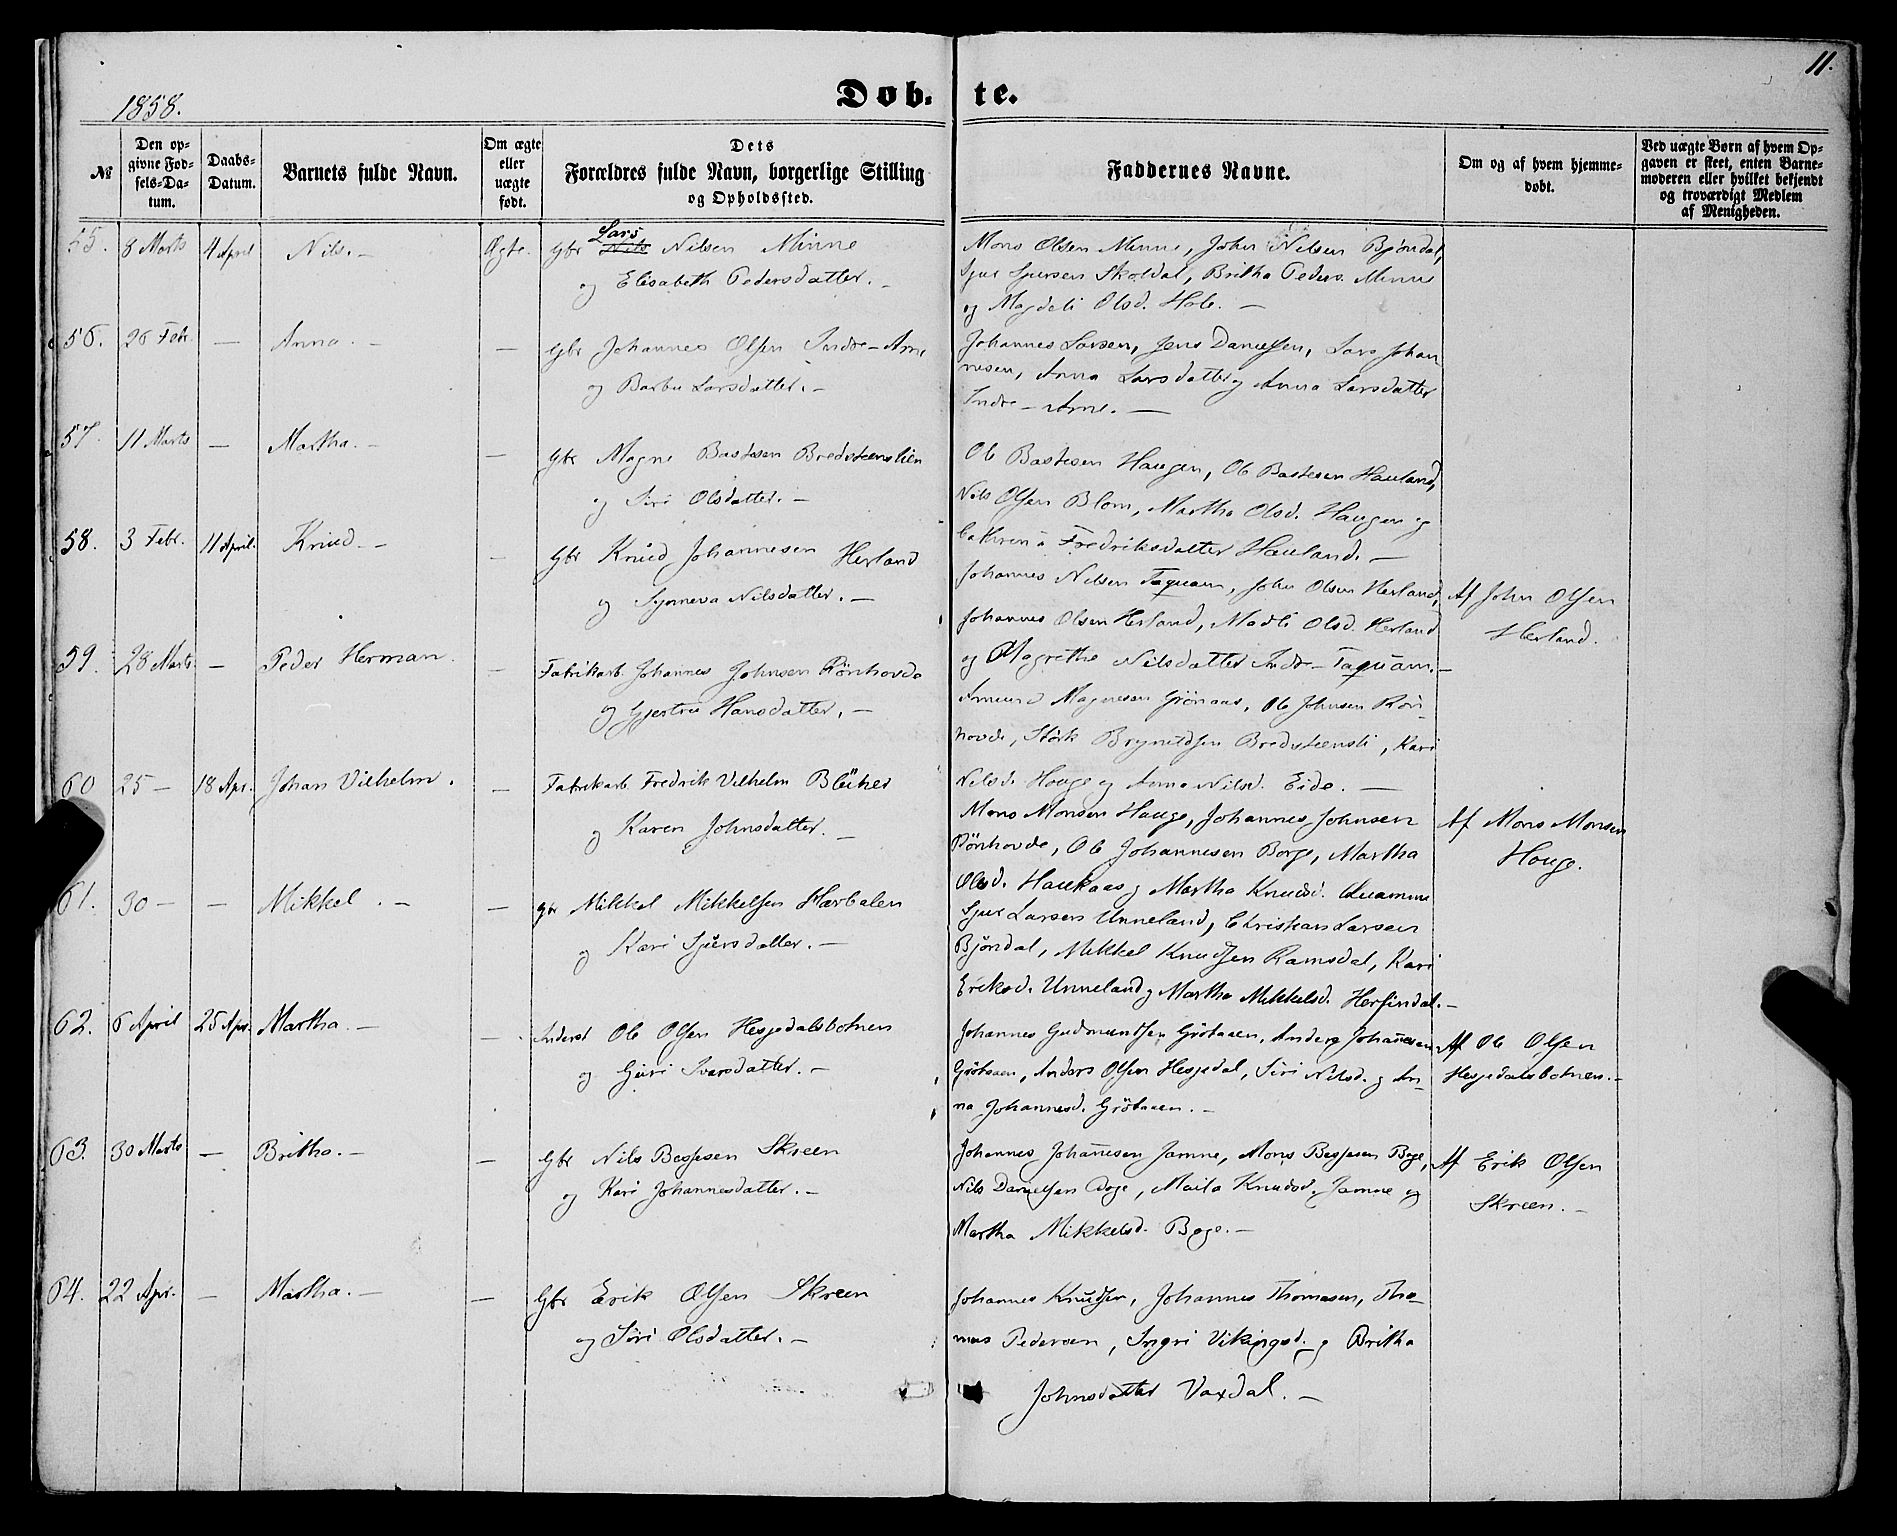 11.
1858.
Døb- te.
№
Den op-
givne Fød-
sels-Da-
tum.
Daabs-
Datum.
Barnets fulde Navn.
Om ægte
eller
uægte
født.
Dets
Forældres fulde Navn, borgerlige Stilling
og Opholdssted.
Faddernes Navne.
Om og af hvem hjemme-
døbt.
Ved uægte Børn af hvem Op-
gaven er skeet, enten Barne-
moderen eller hvilket bekjendt
og troværdigt Medlem
af Menigheden.
55. 8 Marts 4 April Nils. - Ægte. Gbr Lars Nils Nilsen Minne
og Elisabeth Pedersdatter. -
Mons Olsen Minne, John Nilsen Bjöndal,
Sjur Sjursen Skoldal, Britha Peders. Minne
og Magdeli Olsd. Hole. -
56. 26 Febr. - Anna. - - Gbr Johannes Olsen Indre-Arne
og Barbu Larsdatter. -
Johannes Larsen, Jens Danielsen, Lars Johan
nesen, Anna Larsdatter og Anna Larsdatter
Indre-Arne. -
57. 11 Marts - Martha. - - Gbr Magne Bastesen Bredsteenslien
og Siri Olsdatter. -
Ole Bastesen Haugen, Ole Bastesen Hauland,
Nils Olsen Blom, Martha Olsd. Haugen og
Cathrina Fredriksdatter Hauland. -
58. 3 Febr. 11 April. Knud. - - Gbr Knud Johannesen Herland
og Synneva Nilsdatter. -
Johannes Nilsen Taquam, John Olsen Herland,
Johannes Olsen Herland, Madli Olsd. Herland
og Magrethe Nilsdatter Indre-Taquam. -
Af John Olsen
Herland.
59. 28 Marts. - Peder Herman. - Fabrikarb. Johannes Johnsen Rönhovde
og Gjertru Hansdatter. -
Amund Magnesen Grönaas, Ole Johnsen Rön-
hovde, Störk Brynildsen Bredsteensli, Kari
Nilsd. Houge og Anna Nilsd. Eide. -
60 25 - 18 Apr. Johan Vilhelm. - Fabrikarb. Fredrik Vilhelm Blücher
og Karen Johnsdatter. -
Mons Monsen Hauge, Johannes Johnsen
Rönhovde, Ole Johannesen Borge, Martha
Olsd. Haukaas og Martha Knudsd. Quamme
Af Mons Monsen
Houge.
61. 30 - - Mikkel. - - Gbr Mikkel Mikkelsen Harbalen
og Kari Sjursdatter. -
Sjur Larsen Unneland, Christian Larsen
Bjöndal, Mikkel Knudsen Ramsdal, Kari
Eriksd. Unneland og Martha Mikkelsd. Herfindal. -
62. 6 April 25 Apr. Martha. - - Inderst Ole Olsen Hesjedalsbotnen
og Guri Ivarsdatter. -
Johannes Gudmundsen Gröttaaen, Anders Johannesen
Gröttaaen, Anders Olsen Hesjedal, Siri Nilsd. og An-
na Johannesd. Gröttaaen. -
Af Ole Olsen
Hesjedalsbotnen. -
63. 30 Marts - Britha. - - Gbr Nils Besjesen Skreen
og Kari Johannesdatter. -
Johannes Johannesen Jamne, Mons Besjesen Boge,
Nils Danielsen Boge, Maila Knudsd. Jamne og
Martha Mikkelsd. Boge. -
Af Erik Olsen
Skreen. -
64. 22 Apr. - Martha. - - Gbr Erik Olsen Skreen
og Siri Olsdatter. -
Johannes Knudsen, Johannes Thomasen, Tho-
mas Pedersen, Ingri Vikingsd. og Britha
Johnsdatter Vaxdal. -